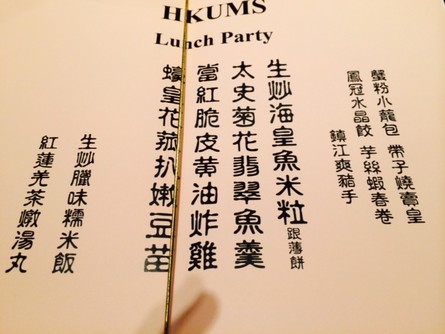 HKUMS
Lunch Party
蟹粉小籠包 帶子燒賣皇
鳳冠水晶餃 芋絲蝦春卷
鎮江爽豬手
生炒海皇魚米粒 跟薄餅
太史菊花翡翠魚羹
當紅脆皮黄油炸雞
蠔皇花菇扒嫩豆苗
生炒臘味糯米飯
紅蓮羌茶燉湯丸